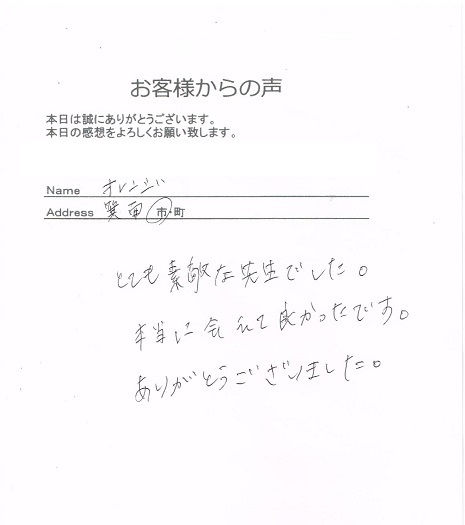 お客様からの声
本日は誠にありがとうございます。
本日の感想をよろしくお願い致します。
Name オレンジ
Address 箕面 市・町
とても素敵な先生でした。
本当に会えて良かったです。
ありがとうございました。